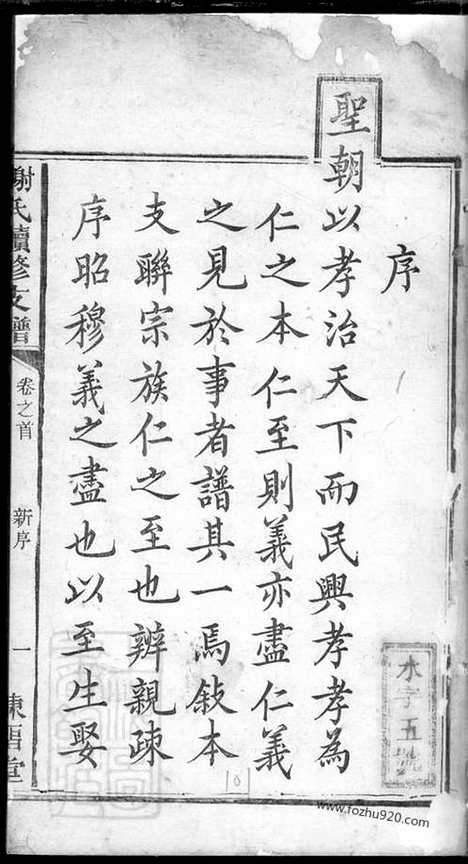 序
聖朝以孝治天下而民興孝孝為
仁之本仁至則義亦盡仁義
之見於事者譜其一焉敍本
支聯宗族仁之至也辨親疎
序昭穆義之盡也以至生娶
謝氏續修支譜
卷之首
新序
一
木字五號
www.fozhu920.com